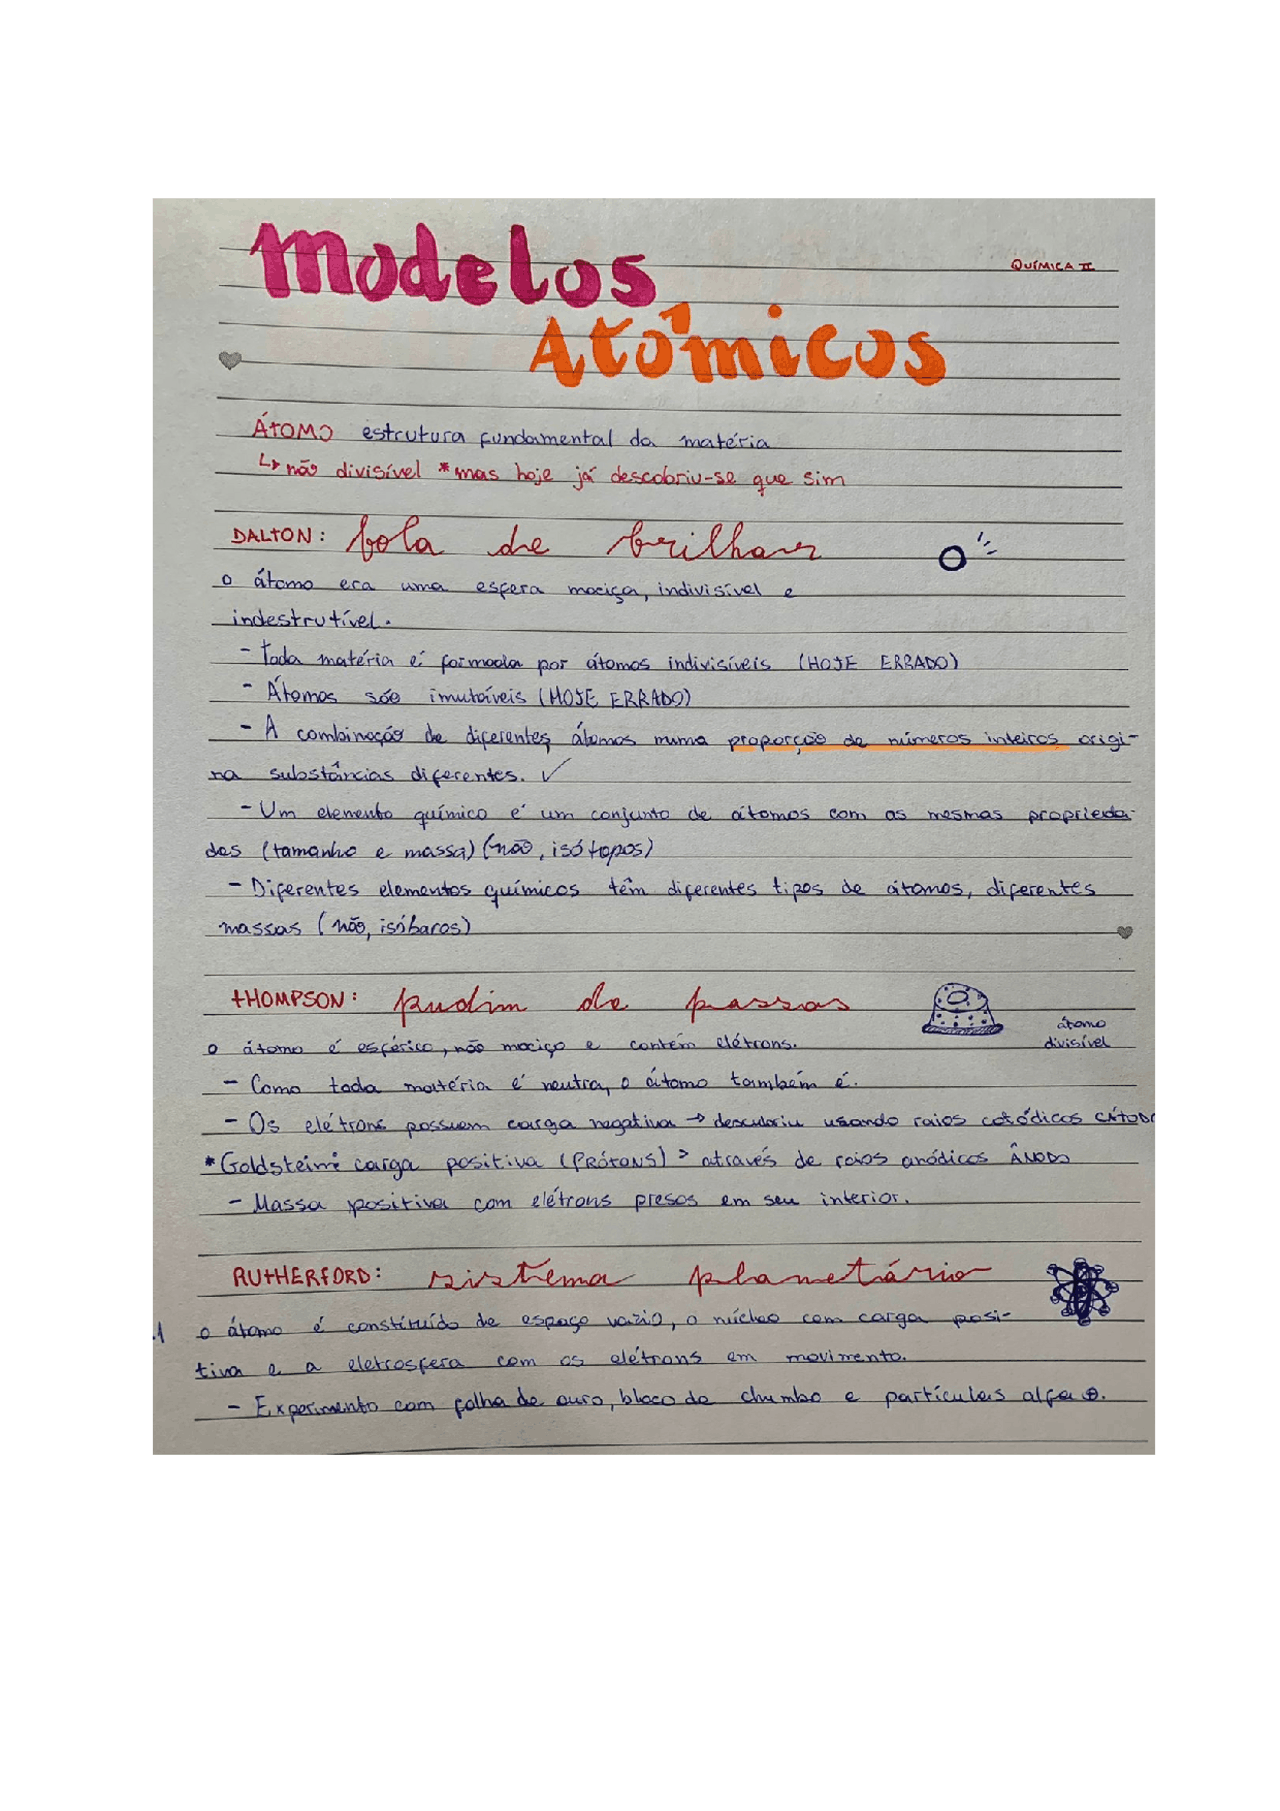 Modelos
QUÍMICA II
Atômicos
ÁTOMO estrutura fundamental da matéria
↳ não divisível *mas hoje já descobriu-se que sim
DALTON: bola de brilhar
o átomo era uma esfera maciça, indivisível e
indestrutível.
- Toda matéria é formada por átomos indivisíveis (HOJE ERRADO)
- Átomos são imutáveis (HOJE ERRADO)
- A combinação de diferentes átomos numa proporção de números inteiros origi-
na substâncias diferentes. ✓
- Um elemento químico é um conjunto de átomos com as mesmas proprieda-
des (tamanho e massa) (não, isótopos)
- Diferentes elementos químicos têm diferentes tipos de átomos, diferentes
massas (não, isóbaros)
THOMPSON: pudim de passas
átomo
divisível
o átomo é esférico, não maciço e contém elétrons.
- Como toda matéria é neutra, o átomo também é.
- Os elétrons possuem carga negativa → descobriu usando raios catódicos CÁTODO
*Goldstein: carga positiva (PRÓTONS) > através de raios anódicos ÂNODO
- Massa positiva com elétrons presos em seu interior.
RUTHERFORD: sistema planetário
.1 o átomo é constituído de espaço vazio, o núcleo com carga posi-
tiva e a eletrosfera com os elétrons em movimento.
- Experimento com folha de ouro, bloco de chumbo e partículas alfa ⊕.